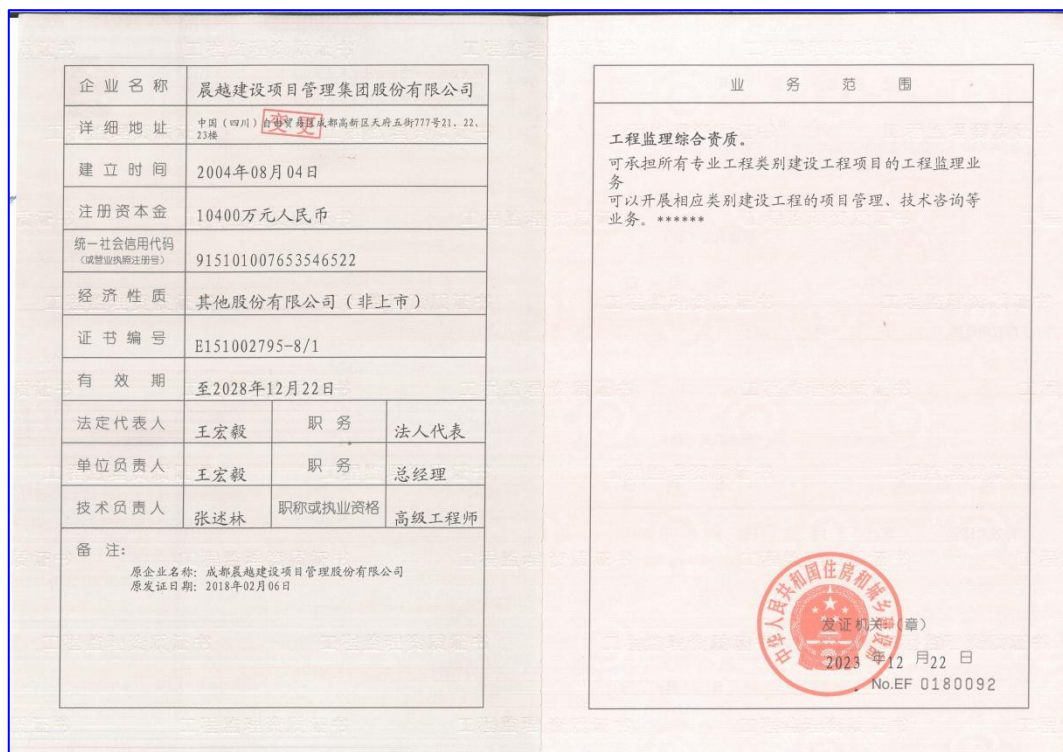 企业名称 晨越建设项目管理集团股份有限公司
详细地址 中国（四川）自由贸易区成都高新区天府五街777号21、22、
23楼
变更
建立时间 2004年08月04日
注册资本金 10400万元人民币
统一社会信用代码
（或营业执照注册号） 915101007653546522
经济性质 其他股份有限公司（非上市）
证书编号 E151002795-8/1
有效期 至2028年12月22日
法定代表人 王宏毅 职务 法人代表
单位负责人 王宏毅 职务 总经理
技术负责人 张述林 职称或执业资格 高级工程师
备注：
原企业名称：成都晨越建设项目管理股份有限公司
原发证日期：2018年02月06日
业务范围
工程监理综合资质。
可承担所有专业工程类别建设工程项目的工程监理业
务
可以开展相应类别建设工程的项目管理、技术咨询等
业务。******
中华人民共和国住房和城乡建设部
发证机关：（章）
2023 年12 月22 日
No.EF 0180092